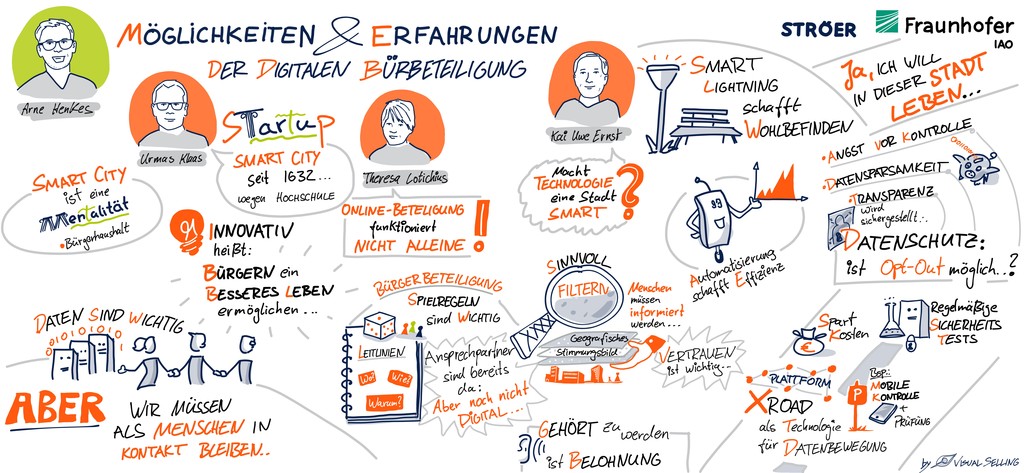 MÖGLICHKEITEN & ERFAHRUNGEN
DER DIGITALEN BÜRBETEILIGUNG
STRÖER
Fraunhofer
IAO
Arne Henkes
Urmas Klaas
Theresa Lotichius
Kai Uwe Ernst
SMART CITY
ist eine
Mentalität
• Bürgerhaushalt
STartup
SMART CITY
seit 1632...
wegen HOCHSCHULE
ONLINE-BETEILIGUNG
funktioniert
NICHT ALLEINE!
INNOVATIV
heißt:
BÜRGERN ein
BESSERES LEBEN
ermöglichen...
DATEN SIND WICHTIG
ABER
WIR MÜSSEN
ALS MENSCHEN IN
KONTAKT BLEIBEN..
BÜRGERBETEILIGUNG
SPIELREGELN
sind WICHTIG
LEITLINIEN
Wo?
Wie?
Warum?
Ansprechpartner
sind bereits
da:
Aber noch nicht
DIGITAL...
SINNVOLL
FILTERN
Menschen
müssen
informiert
werden...
Geografisches
Stimmungsbild
VERTRAUEN
ist wichtig...
GEHÖRT zu werden
ist BELOHNUNG
SMART
LIGHTNING
schafft
WOHLBEFINDEN
Macht
TECHNOLOGIE
eine Stadt
SMART
?
Automatisierung
schafft Effizienz
Ja, ICH WILL
IN DIESER STADT
LEBEN...
• ANGST VOR KONTROLLE
• DATENSPARSAMKEIT
• TRANSPARENZ
wird
sichergestellt..
DATENSCHUTZ:
ist Opt-Out möglich..?
Spart
Kosten
Regelmäßige
SICHERHEITS
TESTS
PLATTFORM
XROAD
als Technologie
für DATENBEWEGUNG
P
Bsp.:
MOBILE
KONTROLLE
+
PRÜFUNG
by VISUAL SELLING